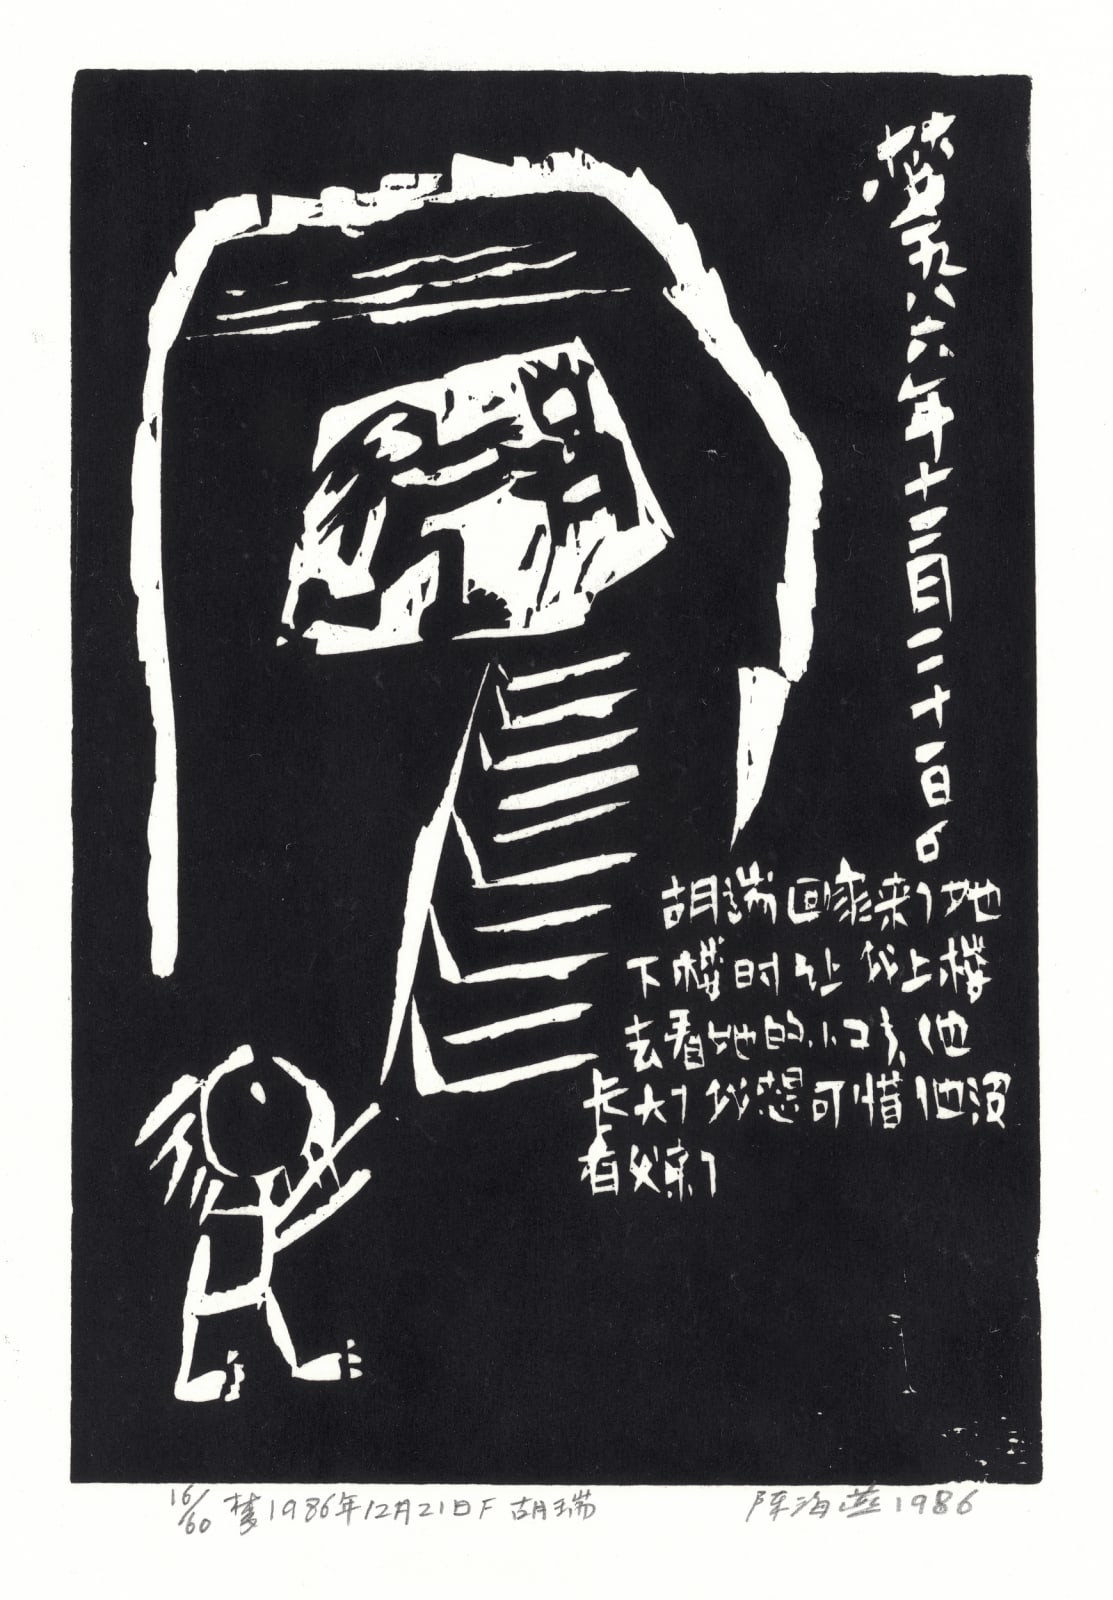 梦一九八六年十二月二十一日6
胡瑞回家来了她
下楼时让我上楼
去看她的小孩他
长大了我想可惜他没
有父亲了
16/60 梦1986年12月21日F 胡瑞
陈海燕1986